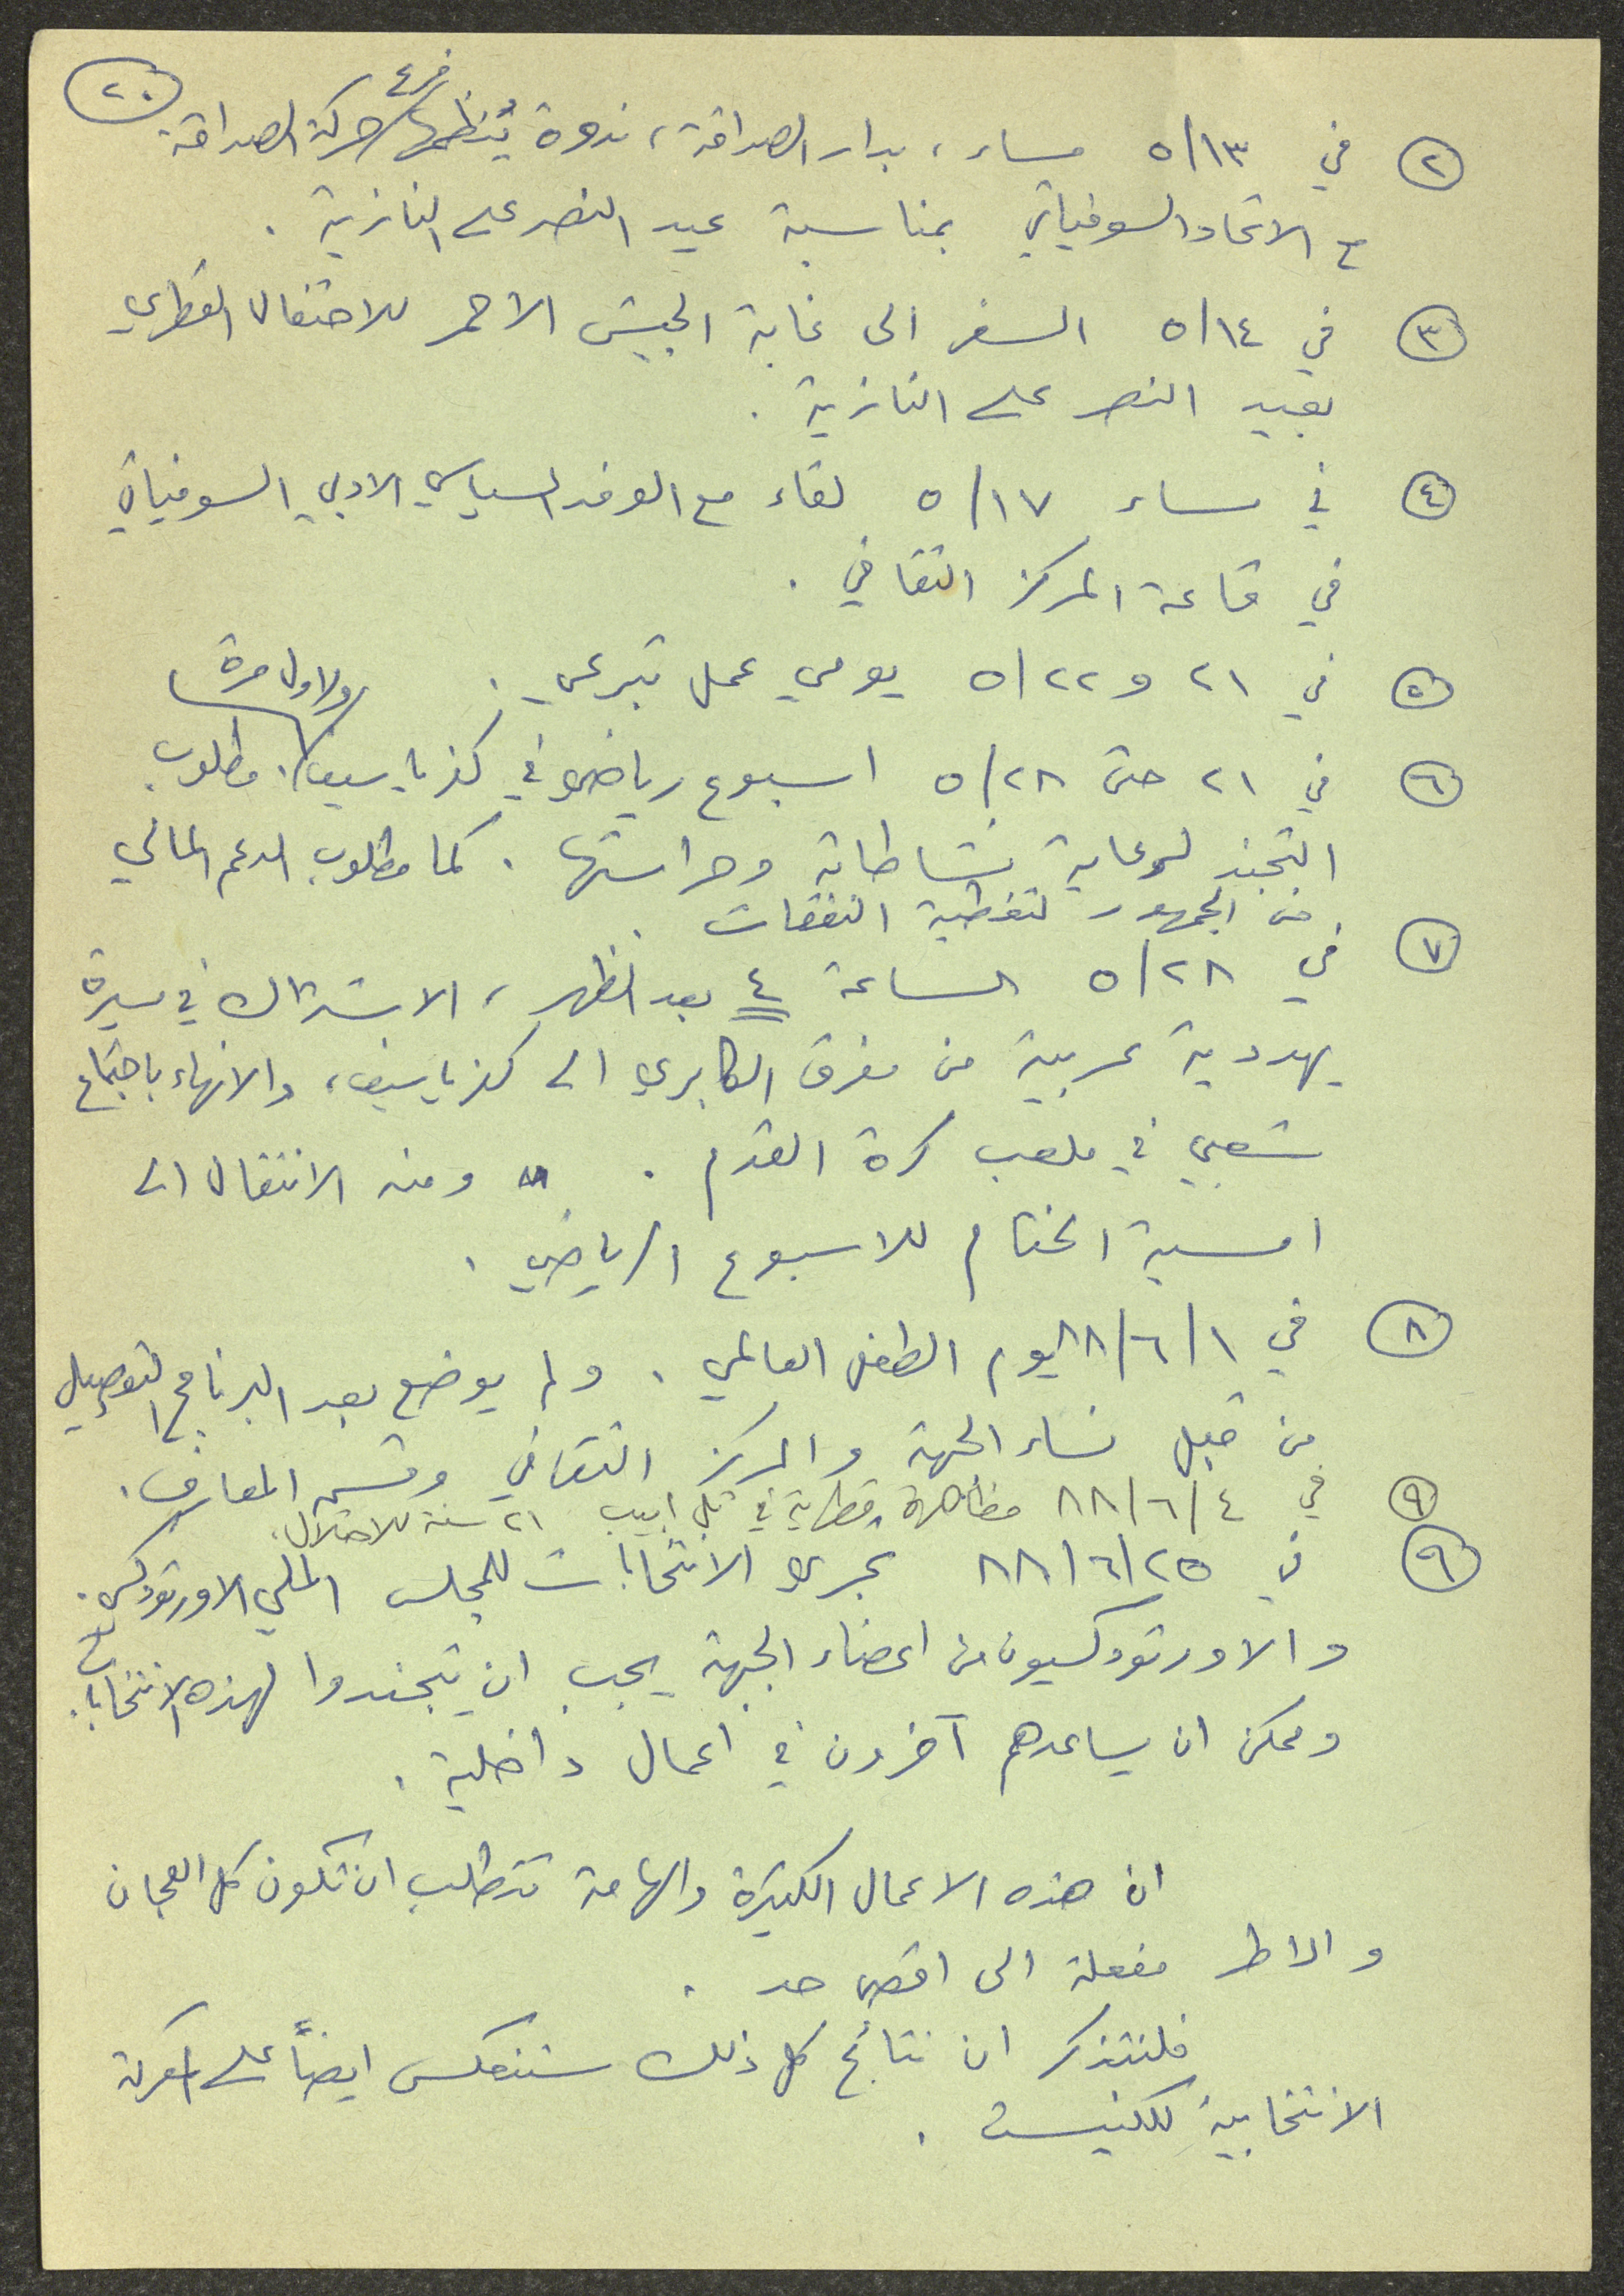 ٢٠
② في ٥/١٣ مساء، بدار الصداقة، ندوة يُنظمها فرع حركة الصداقة
مع الاتحاد السوفياتي بمناسبة عيد النصر على النازية .
③ في ٥/١٤ السفر الى غابة الجيش الاحمر للاحتفال القطري
بعيد النصر على النازية .
④ في مساء ٥/١٧ لقاء مع الوفد السياسي الادبي السوفياتي
في قاعة المركز الثقافي .
⑤ في ٢١ و ٥/٢٢ يومي عمل تبرعي .
⑥ في ٢١ حتى ٥/٢٨ اسبوع رياضي في كفرياسيف ولاول مرة . مطلوب
التجند لرعاية نشاطاته وحراستها . كما مطلوب الدعم المالي
من الجمهور لتغطية النفقات .
⑦ في ٥/٢٨ الساعة ٤ بعد الظهر، الاشتراك في مسيرة
يهودية عربية من مفرق الكابري الى كفرياسيف، والانهاء باجتماع
شعبي في ملعب كرة القدم . ومنه الانتقال الى
امسية الختام للاسبوع الرياضي .
⑧ في ٨٨/٦/١ يوم الطفل العالمي . ولم يوضع بعد البرنامج التفصيلي
من قبل نساء الجبهة والمركز الثقافي وقسم المعارف .
⑨ في ٨٨/٦/٤ مظاهرة قطرية في تل ابيب ٢١ سنة للاحتلال .
⑨ في ٨٨/٦/٢٥ تجري الانتخابات للمجلس الملي الاورثوذكسي .
والاورثوذكسيون من اعضاء الجبهة يجب ان يتجندوا لهذه الانتخابات
وممكن ان يساعدهم آخرون في اعمال داخلية .
ان هذه الاعمال الكثيرة والهامة تتطلب ان تكون كل اللجان
والاطر مفعلة الى اقصى حد .
فلنتذكر ان نتائج كل ذلك ستنعكس ايضاً على المعركة
الانتخابية للكنيست .